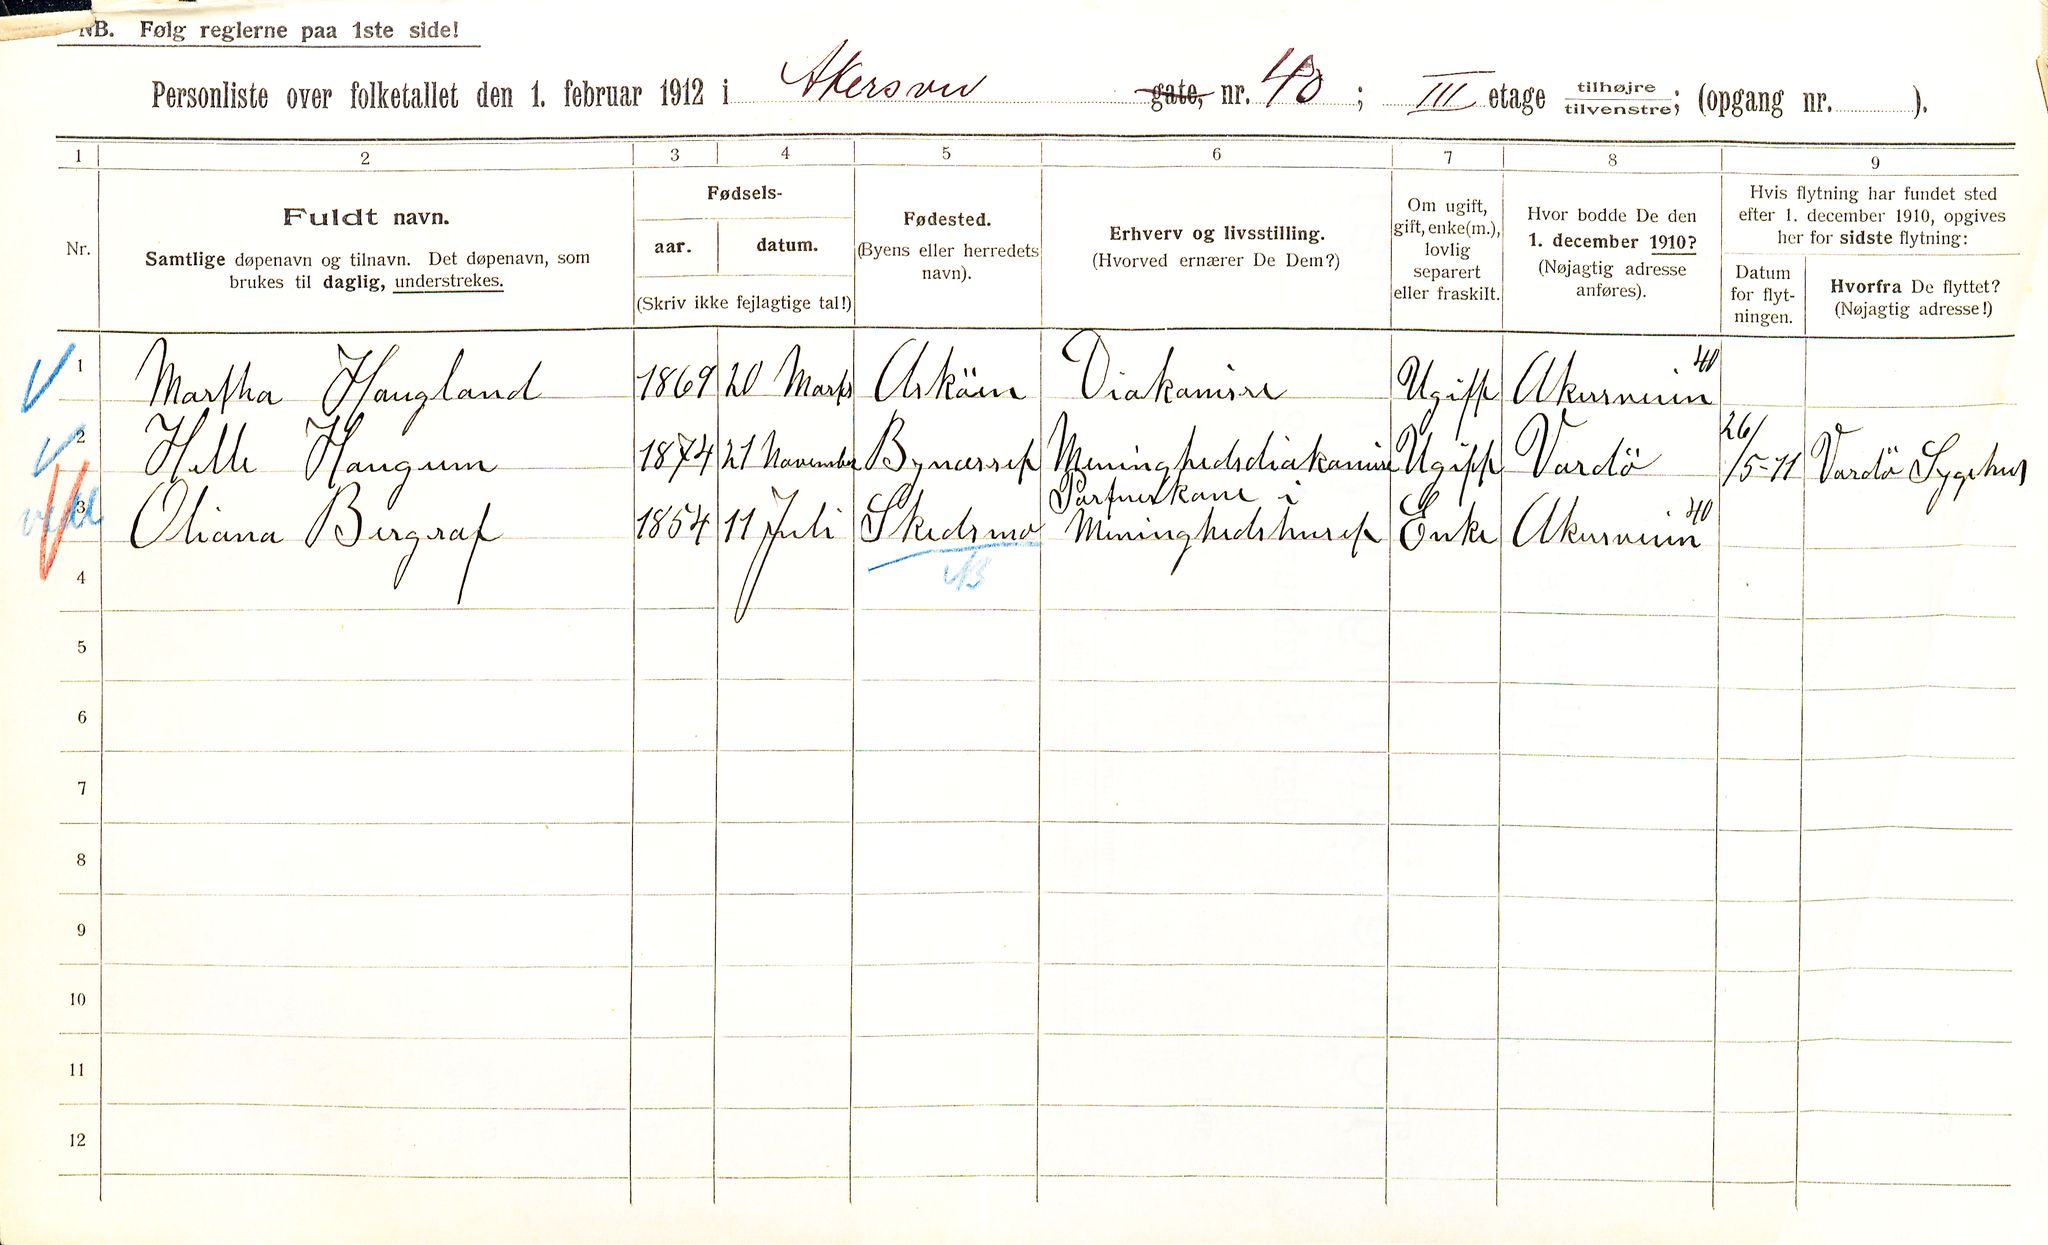 NB. Følg reglerne paa 1ste side!
Personliste over folketallet den 1. februar 1912 i Akersvei gate, nr. 40; III etage tilhøjre/tilvenstre; (opgang nr. ).
1 2 3 4 5 6 7 8 9
Nr.
Fuldt navn.
Samtlige døpenavn og tilnavn. Det døpenavn, som
brukes til daglig, understrekes.
Fødsels-
aar. datum.
(Skriv ikke fejlagtige tal!)
Fødested.
(Byens eller herredets
navn).
Erhverv og livsstilling.
(Hvorved ernærer De Dem?)
Om ugift,
gift, enke(m.),
lovlig
separert
eller fraskilt.
Hvor bodde De den
1. december 1910?
(Nøjagtig adresse
anføres).
Hvis flytning har fundet sted
efter 1. december 1910, opgives
her for sidste flytning:
Datum
for flyt-
ningen.
Hvorfra De flyttet?
(Nøjagtig adresse!)
1 Martha Haugland 1869 20 Marts Asköen Diakonisse Ugift Akersveien 40
2 Haugum 1874 21 November Bynæsset Meninghedsdiakonisse Ugift Vardö 26/5-11 Vardö Sygehus
3 Oliana Bergraf 1854 11 Juli Skedsmo Portnerkone i
Meninghedshuset Enke Akersveien 40
NB
4
5
6
7
8
9
10
11
12